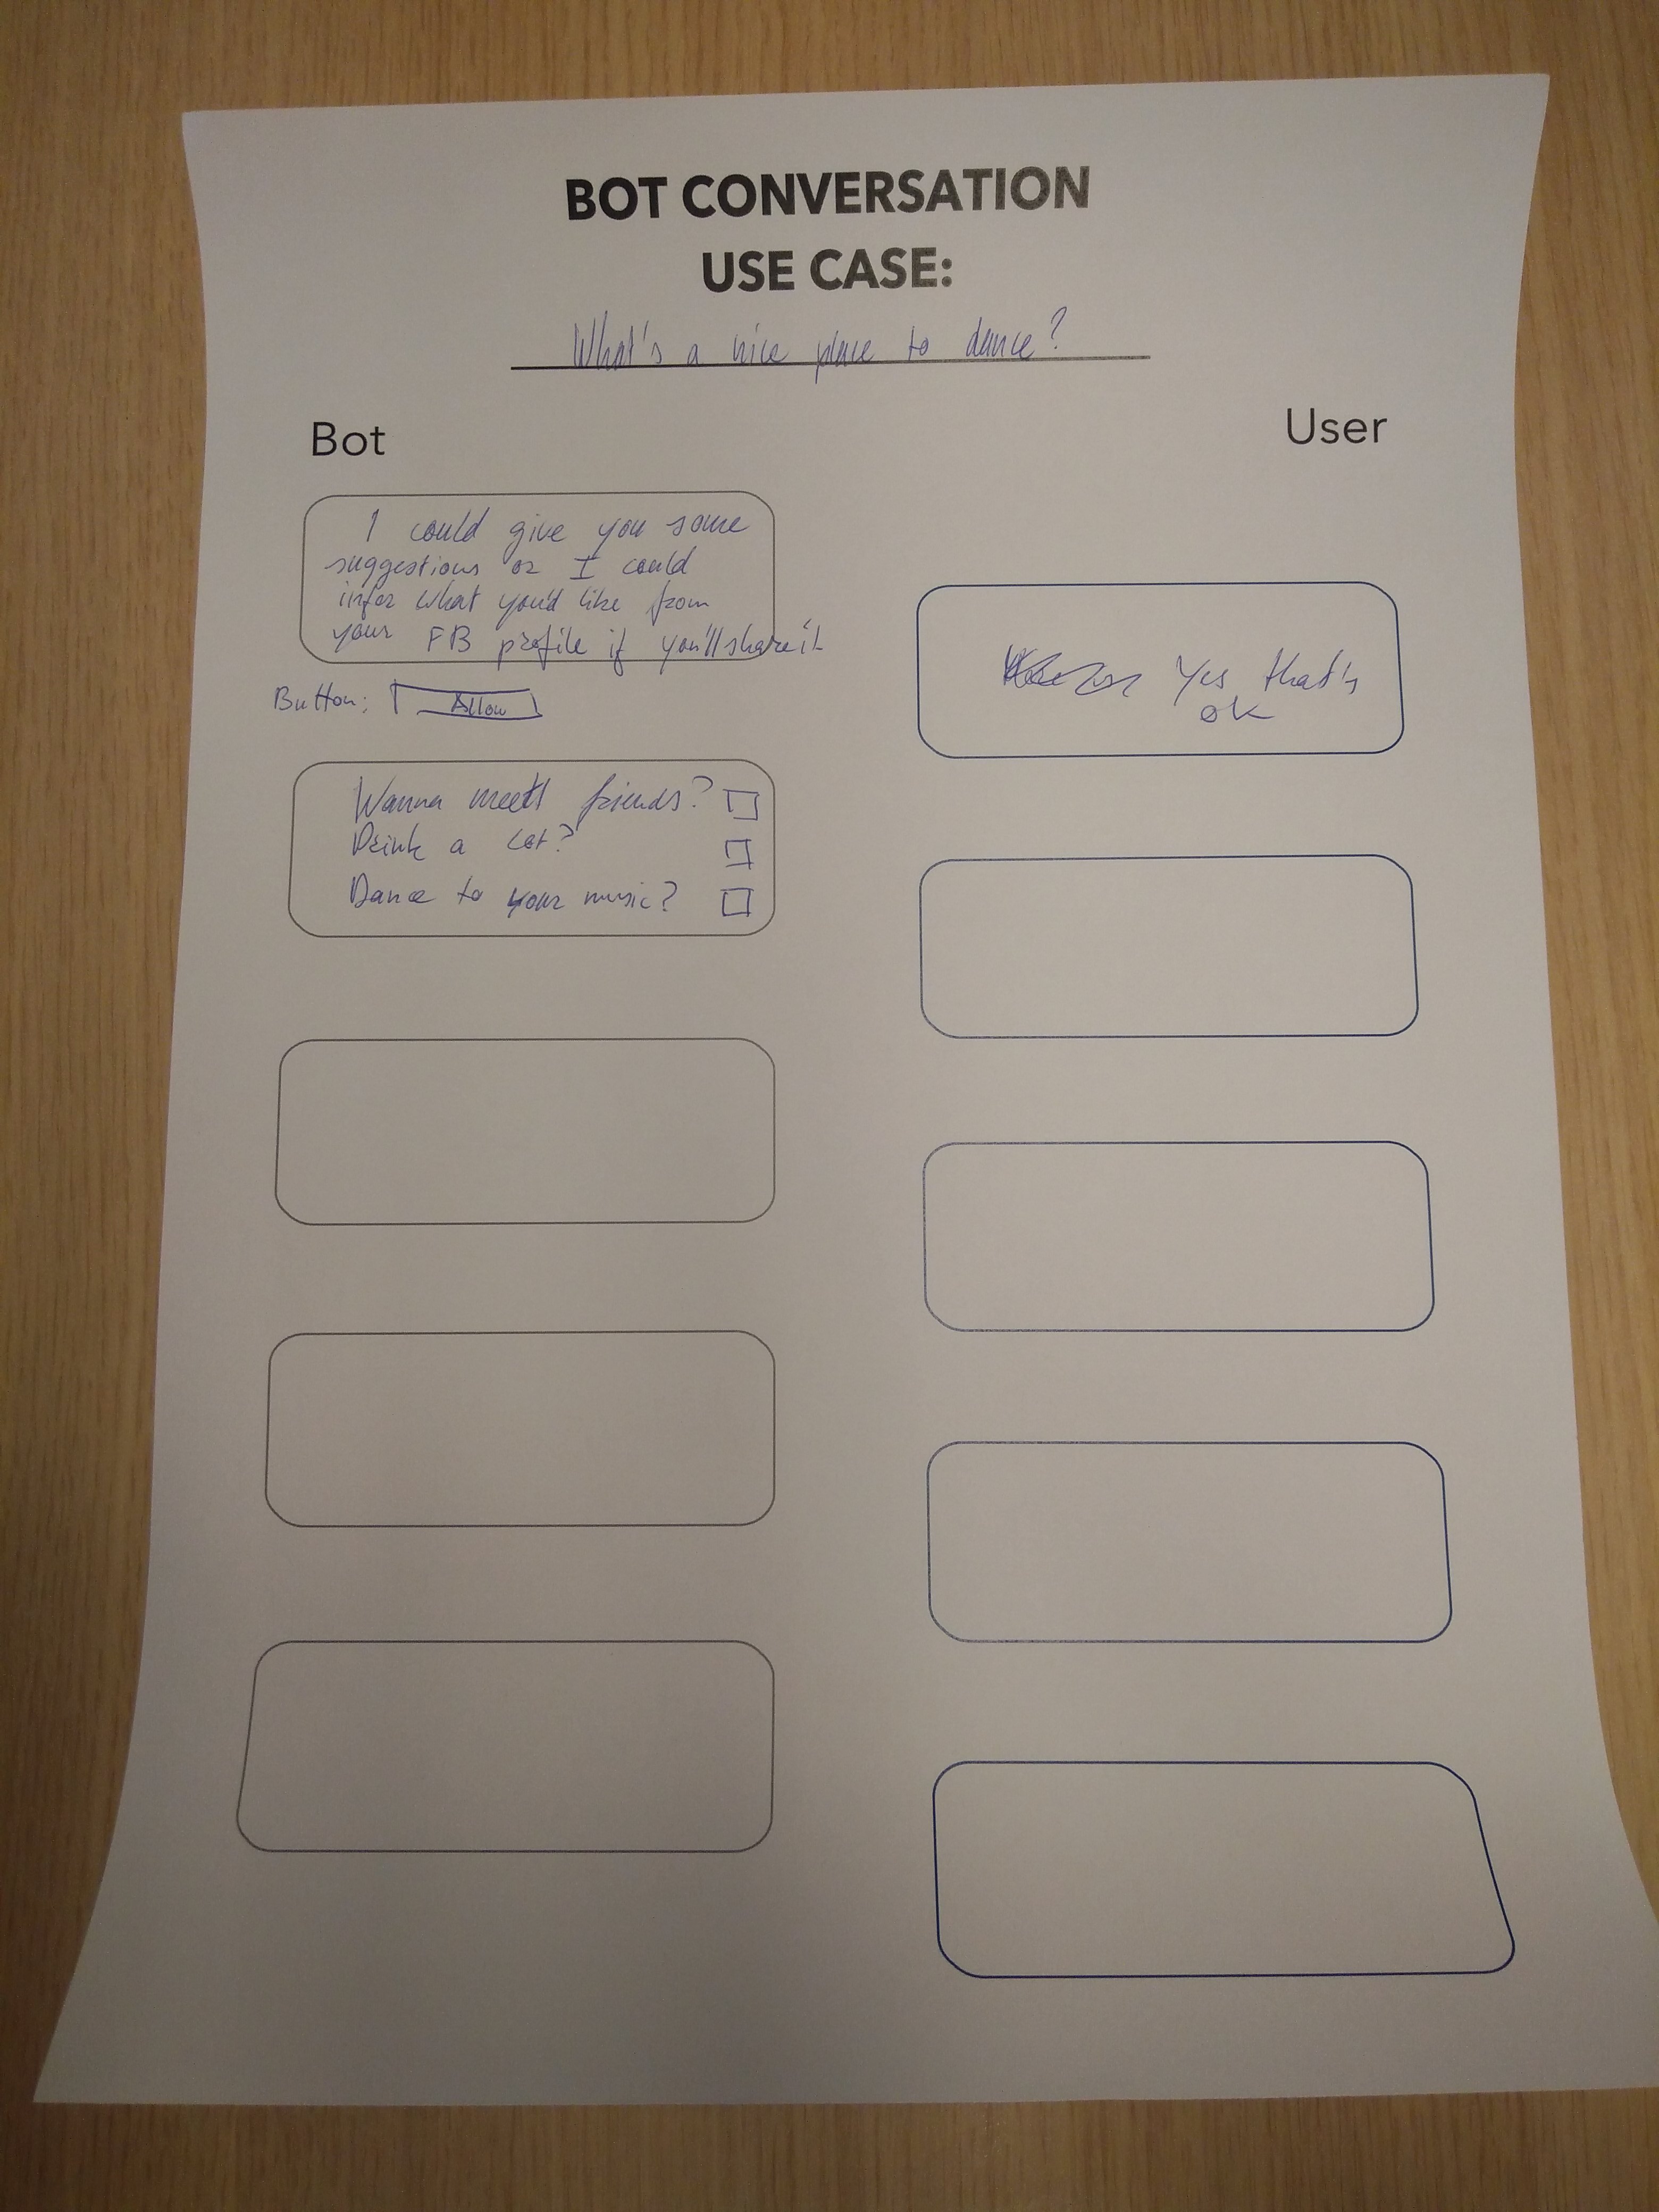 BOT CONVERSATION
USE CASE:
What's a nice place to dance?
Bot
User
I could give you some
suggestions or I could
infer what you'd like from
your FB profile if you'll share it
Button: Allow
Yes, that's
ok
Wanna meet friends?
Drink a lot?
Dance to your music?